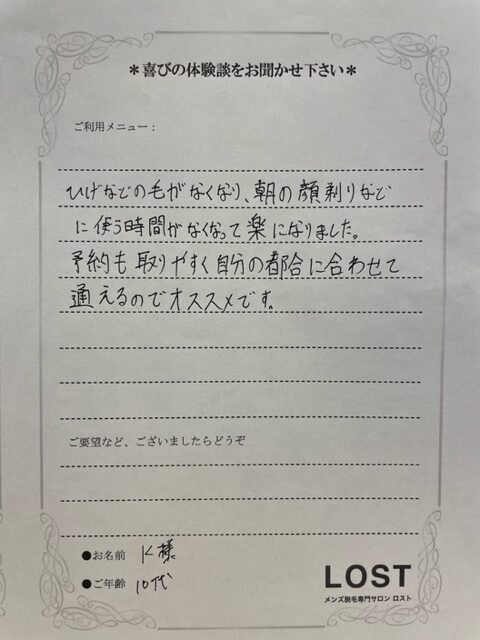 ＊喜びの体験談をお聞かせ下さい＊
ご利用メニュー：
ひげなどの毛がなくなり、朝の顔剃りなど
に使う時間がなくなって楽になりました。
予約も取りやすく自分の都合に合わせて
通えるのでオススメです。
ご要望など、ございましたらどうぞ
●お名前 K様
●ご年齢 10代
LOST
メンズ脱毛専門サロン ロスト